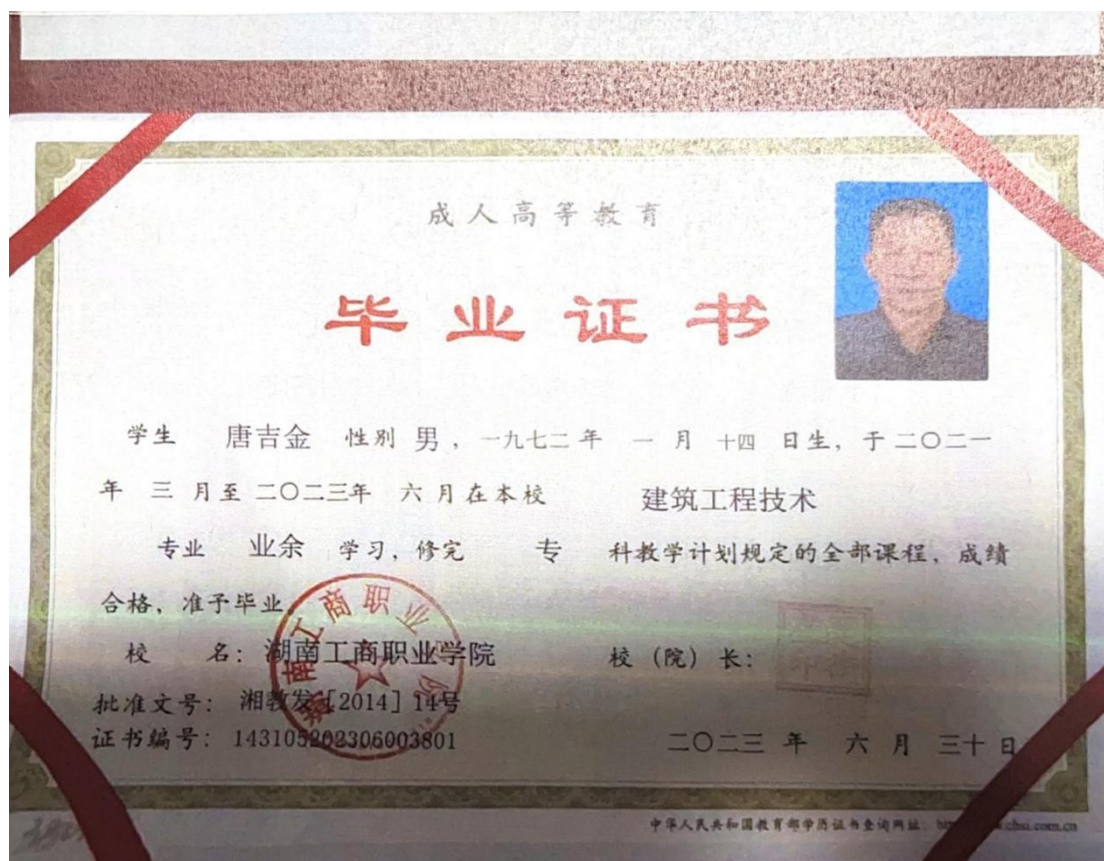 成人高等教育
毕业证书
学生 唐吉金 性别 男，一九七二年 一月 十四 日生，于二〇二一
年 三 月至二〇二三年 六月在本校 建筑工程技术
专业 业余 学习，修完 专 科教学计划规定的全部课程，成绩
合格，准予毕业。
校 名：湖南工商职业学院 校（院）长：
批准文号：湘教发［2014］14号
证书编号：143105202306003801
二〇二三 年 六 月 三十 日
中华人民共和国教育部学历证书查询网址：